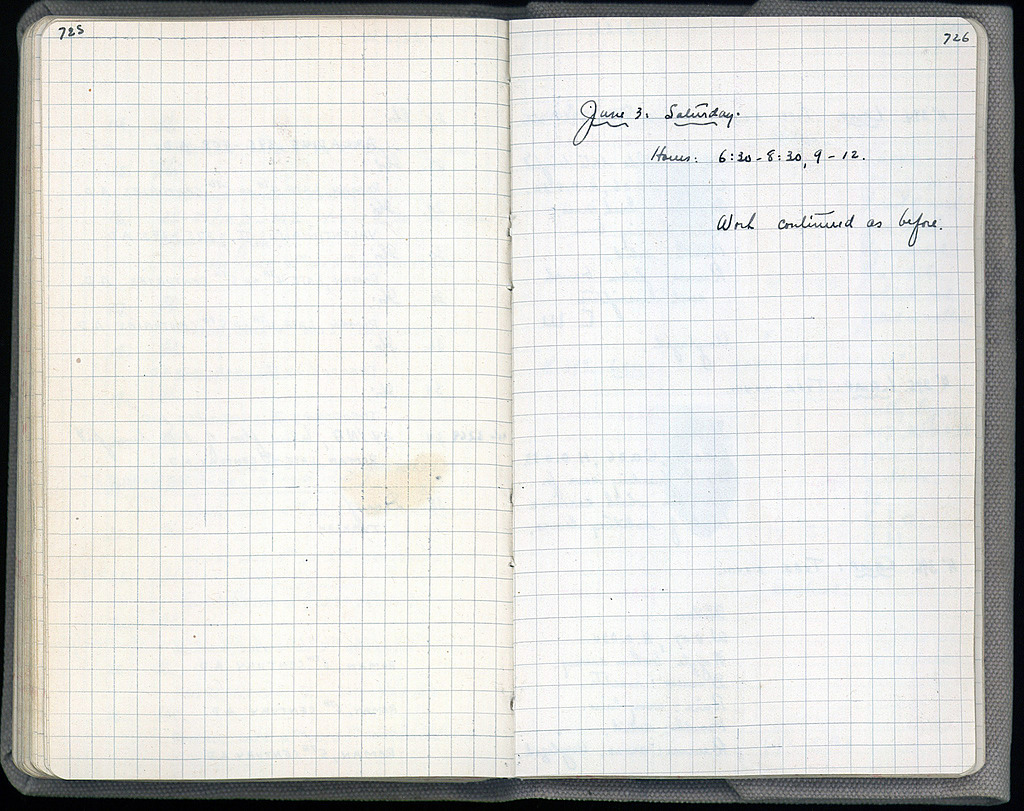 725
726
June 3. Saturday.
Hours: 6:30-8:30, 9-12.
Work continued as before.